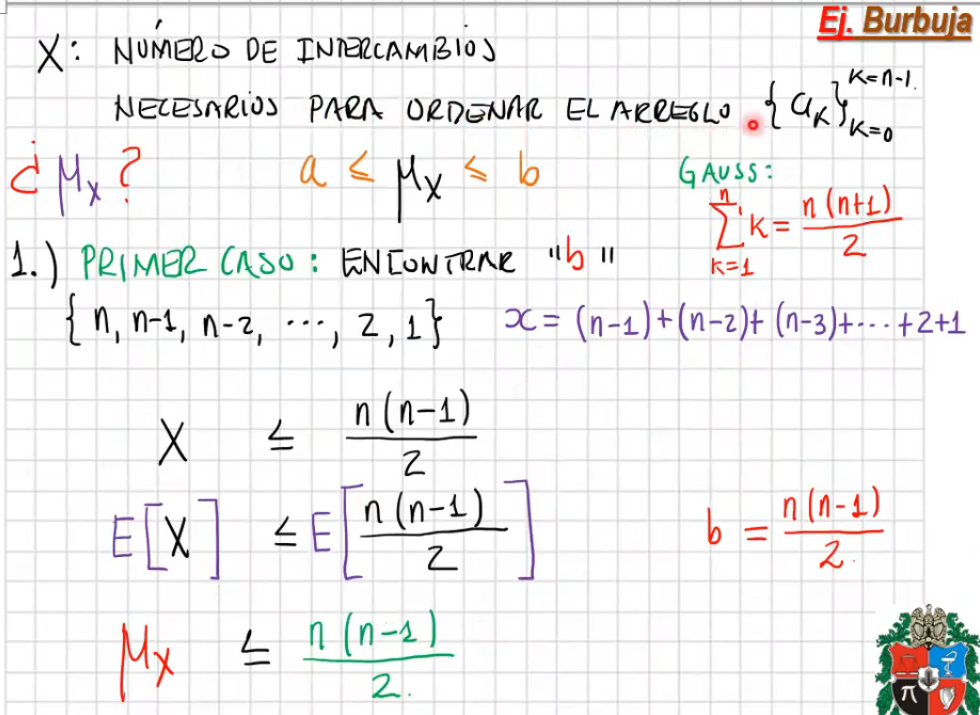 Ej. Burbuja
X: NÚMERO DE INTERCAMBIOS
NECESARIOS PARA ORDENAR EL ARREGLO. {a_k}_{k=0}^{k=n-1.}
¿μ_X?
a ≤ μ_X ≤ b
GAUSS:
∑_{k=1}^{n} k = n(n+1)/2
1.) PRIMER CASO: ENCONTRAR "b"
{n, n-1, n-2, ..., 2, 1}
x = (n-1)+(n-2)+(n-3)+...+2+1
X ≤ n(n-1)/2
E[X] ≤ E[n(n-1)/2]
b = n(n-1)/2.
μ_X ≤ n(n-1)/2.
π